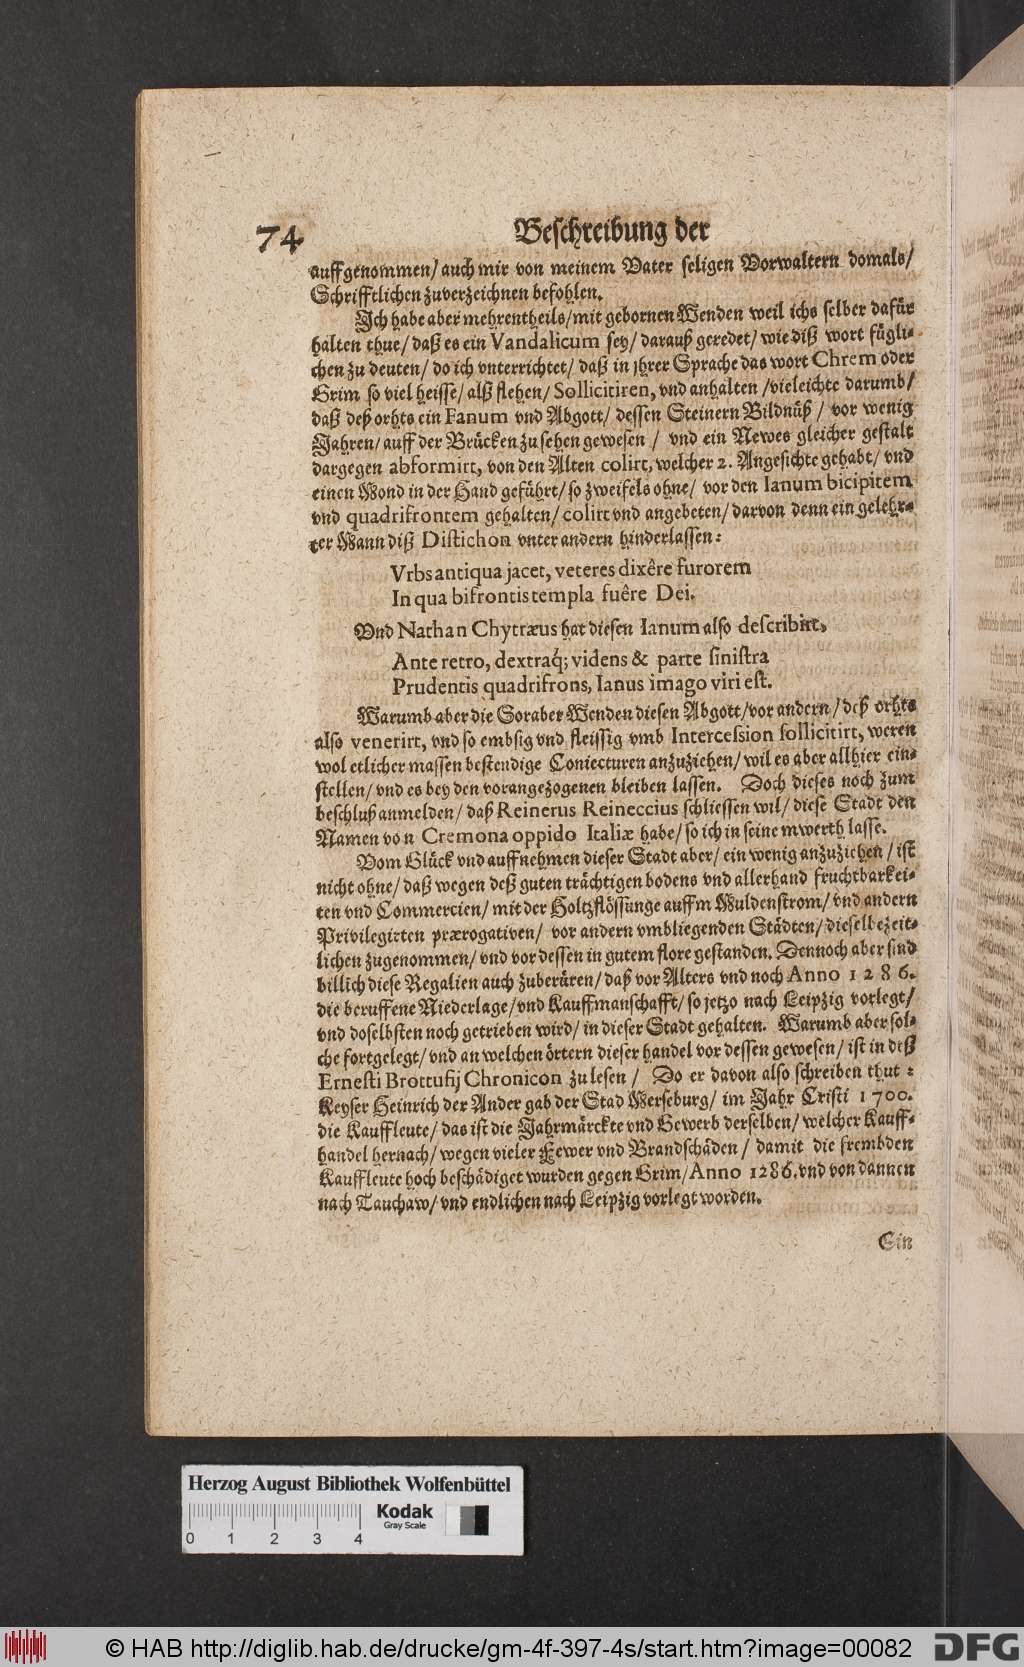 74
Beschreibung der
auffgenommen/ auch mir von meinem Vater seligen Vorwaltern domals/
Schrifftlichen zuverzeichnen befohlen.
Ich habe aber mehrentheils/ mit gebornen Wenden weil ichs selber dafür
halten thue/ daß es ein Vandalicum sey/ darauß geredet/ wie diß wort fügli-
chen zu deuten/ do ich vnterrichtet/ daß in jhrer Sprache das wort Chrem oder
Grim so viel heisse/ alß flehen/ Sollicitiren, vnd anhalten/ vieleichte darumb/
daß deß orhts ein Fanum vnd Abgott/ dessen Steinern Bildnüß/ vor wenig
Jahren/ auff der Brücken zu sehen gewesen/ vnd ein Newes gleicher gestalt
dargegen abformirt, von den Alten colirt, welcher 2. Angesichte gehabt/ vnd
einen Mond in der Hand geführt/ so zweifels ohne/ vor den Ianum bicipitem
vnd quadrifrontem gehalten/ colirt vnd angebeten/ darvon denn ein gelehr-
ter Mann diß Distichon vnter andern hinderlassen:
Vrbs antiqua jacet, veteres dixêre furorem
In qua bifrontis templa fuêre Dei.
Vnd Nathan Chytræus hat diesen Ianum also describirt,
Ante retro, dextraq́; videns & parte sinistra
Prudentis quadrifrons, Ianus imago viri est.
Warumb aber die Soraber Wenden diesen Abgott/ vor andern/ deß orhts
also venerirt, vnd so embsig vnd fleissig vmb Intercession sollicitirt, weren
wol etlicher massen bestendige Coniecturen anzuziehen/ wil es aber allhier ein-
stellen/ vnd es bey den vorangezogenen bleiben lassen. Doch dieses noch zum
beschluß anmelden/ daß Reinerus Reineccius schliessen wil/ diese Stadt den
Namen von Cremona oppido Italiæ habe/ so ich in seinem werth lasse.
Vom Glück vnd auffnehmen dieser Stadt aber/ ein wenig anzuziehen/ ist
nicht ohne/ daß wegen deß guten trächtigen bodens vnd allerhand fruchtbarkei-
ten vnd Commercien/ mit der Holtzflössunge auffm Muldenstrom/ vnd andern
Privilegirten prærogativen/ vor andern vmbliegenden Städten/ dieselbe zeit-
lichen zugenommen/ vnd vor dessen in gutem flore gestanden. Dennoch aber sind
billich diese Regalien auch zuberüren/ daß vor Alters vnd noch Anno 1286.
die beruffene Niederlage/ vnd Kauffmanschafft/ so jetzo nach Leipzig vorlegt/
vnd doselbsten noch getrieben wird/ in dieser Stadt gehalten. Warumb aber sol-
che fortgelegt/ vnd an welchen örtern dieser handel vor dessen gewesen/ ist in deß
Ernesti Brottufij Chronicon zu lesen/ Do er davon also schreiben thut:
Keyser Heinrich der Ander gab der Stad Merseburg/ im Jahr Cristi 1700.
die Kauffleute/ das ist die Jahrmärckte vnd Gewerb derselben/ welcher Kauff-
handel hernach/ wegen vieler Fewer vnd Brandschäden/ damit die frembden
Kauffleute hoch beschädiget wurden gegen Grim/ Anno 1286. vnd von dannen
nach Tauchaw/ vnd endlichen nach Leipzig vorlegt worden.
Ein
Herzog August Bibliothek Wolfenbüttel
Kodak
Gray Scale
0 1 2 3 4
© HAB http://diglib.hab.de/drucke/gm-4f-397-4s/start.htm?image=00082
DFG